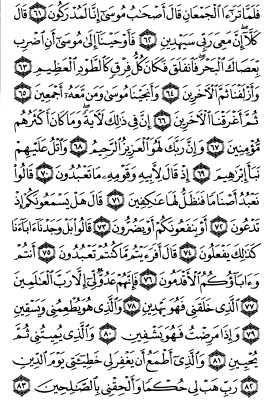 فَلَمَّا تَرَٰٓءَا ٱلْجَمْعَانِ قَالَ أَصْحَٰبُ مُوسَىٰٓ إِنَّا لَمُدْرَكُونَ ٦١
قَالَ كَلَّآ إِنَّ مَعِىَ رَبِّى سَيَهْدِينِ ٦٢ فَأَوْحَيْنَآ إِلَىٰ مُوسَىٰٓ أَنِ ٱضْرِب
بِّعَصَاكَ ٱلْبَحْرَ فَٱنفَلَقَ فَكَانَ كُلُّ فِرْقٍ كَٱلطَّوْدِ ٱلْعَظِيمِ ٦٣
وَأَزْلَفْنَا ثَمَّ ٱلْءَاخَرِينَ ٦٤ وَأَنجَيْنَا مُوسَىٰ وَمَن مَّعَهُۥٓ أَجْمَعِينَ ٦٥
ثُمَّ أَغْرَقْنَا ٱلْءَاخَرِينَ ٦٦ إِنَّ فِى ذَٰلِكَ لَءَايَةً وَمَا كَانَ أَكْثَرُهُم
مُّؤْمِنِينَ ٦٧ وَإِنَّ رَبَّكَ لَهُوَ ٱلْعَزِيزُ ٱلرَّحِيمُ ٦٨ وَٱتْلُ عَلَيْهِمْ
نَبَأَ إِبْرَٰهِيمَ ٦٩ إِذْ قَالَ لِأَبِيهِ وَقَوْمِهِۦ مَا تَعْبُدُونَ ٧٠ قَالُوا۟
نَعْبُدُ أَصْنَامًا فَنَظَلُّ لَهَا عَٰكِفِينَ ٧١ قَالَ هَلْ يَسْمَعُونَكُمْ إِذْ
تَدْعُونَ ٧٢ أَوْ يَنفَعُونَكُمْ أَوْ يَضُرُّونَ ٧٣ قَالُوا۟ بَلْ وَجَدْنَآ ءَابَآءَنَا
كَذَٰلِكَ يَفْعَلُونَ ٧٤ قَالَ أَفَرَءَيْتُم مَّا كُنتُمْ تَعْبُدُونَ ٧٥ أَنتُمْ
وَءَابَآؤُكُمُ ٱلْأَقْدَمُونَ ٧٦ فَإِنَّهُمْ عَدُوٌّ لِّىٓ إِلَّا رَبَّ ٱلْعَٰلَمِينَ
٧٧ ٱلَّذِى خَلَقَنِى فَهُوَ يَهْدِينِ ٧٨ وَٱلَّذِى هُوَ يُطْعِمُنِى وَيَسْقِينِ
٧٩ وَإِذَا مَرِضْتُ فَهُوَ يَشْفِينِ ٨٠ وَٱلَّذِى يُمِيتُنِى ثُمَّ
يُحْيِينِ ٨١ وَٱلَّذِىٓ أَطْمَعُ أَن يَغْفِرَ لِى خَطِيٓـَٔتِى يَوْمَ ٱلدِّينِ
٨٢ رَبِّ هَبْ لِى حُكْمًا وَأَلْحِقْنِى بِٱلصَّٰلِحِينَ ٨٣